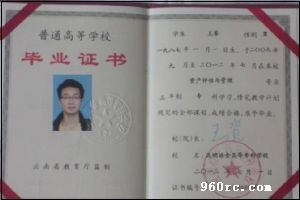 普通高等学校
毕业证书
云南省教育厅监制
学生 性别 男
一九八七年一月一日生，于二〇〇九
年九月至二〇一二年七月在本校
资产评估与管理 专业
三年制 专科学习，修完教学计划
规定的全部课程，成绩合格，准予毕业。
校（院）长：
校（院）名：昆明冶金高等专科学校
二〇一二年七月一日
证书编号
960rc.com